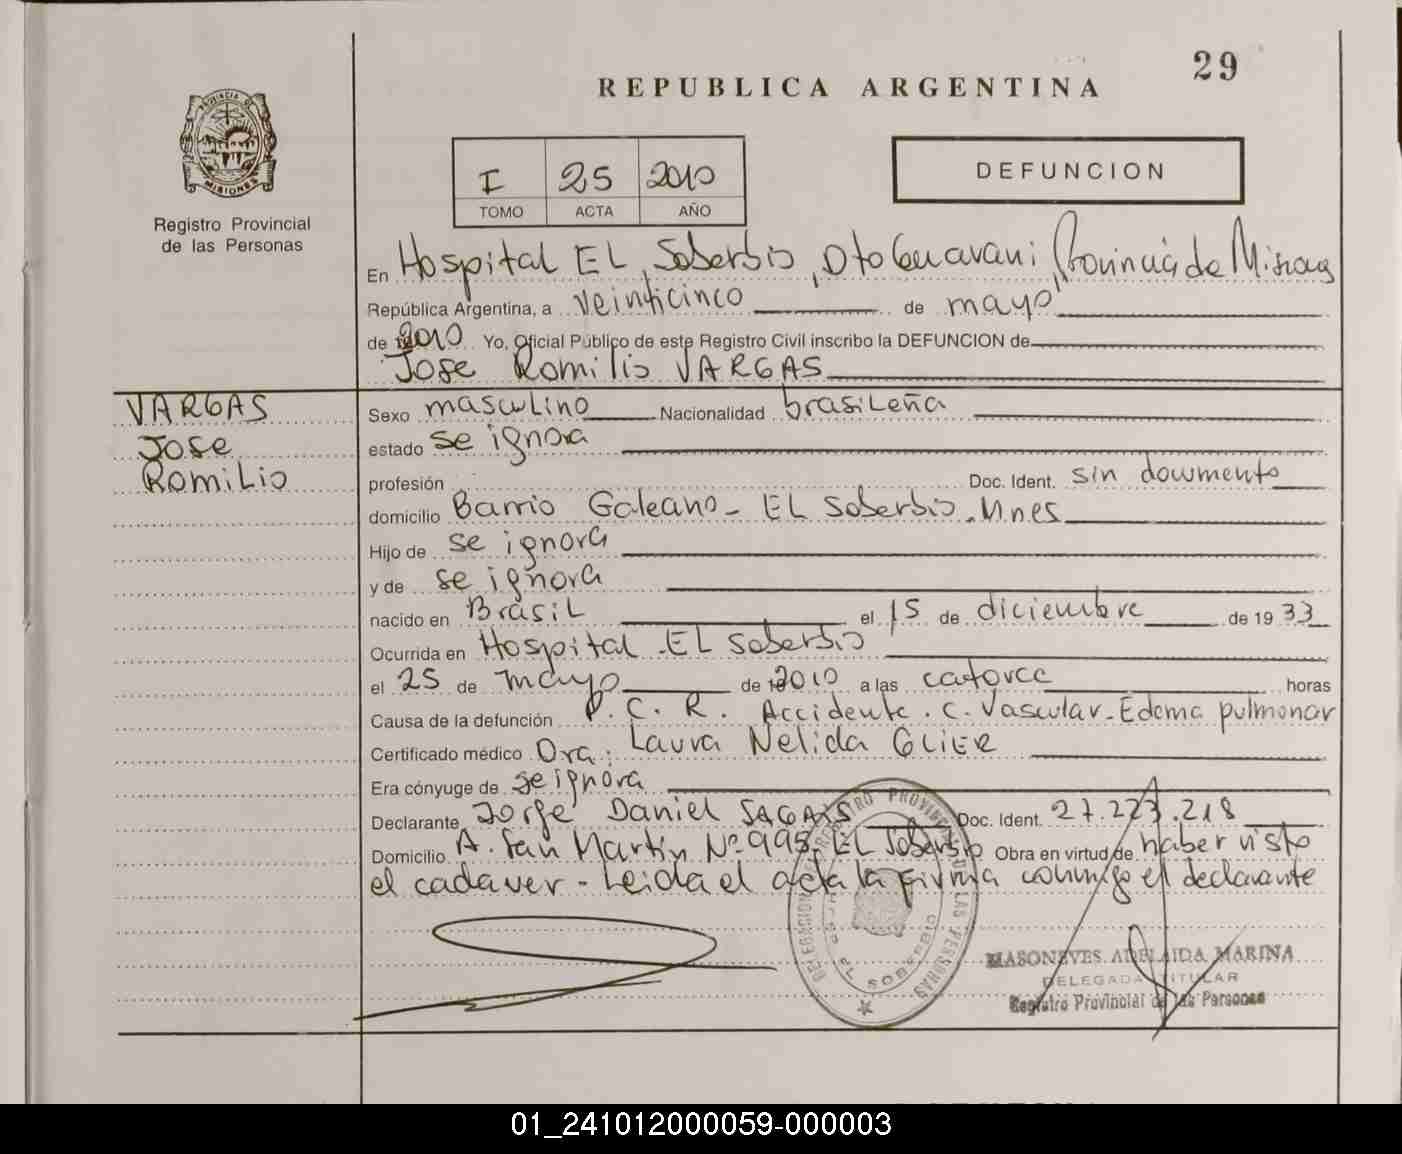 29
REPUBLICA ARGENTINA
PROVINCIA DE
MISIONES
Registro Provincial
de las Personas
I 25 2010
TOMO ACTA AÑO
DEFUNCION
En Hospital EL Soberbio, Dto Guarani, Provincia de Misiones
República Argentina, a veinticinco de mayo
de 2010 Yo, Oficial Público de este Registro Civil inscribo la DEFUNCION de
Jose Romilio VARGAS
VARGAS
Jose
Romilio
Sexo masculino Nacionalidad brasileña
estado se ignora
profesión Doc. Ident. sin documento
domicilio Barrio Galeano - EL Soberbio. Mnes
Hijo de se ignora
y de se ignora
nacido en Brasil el 15 de diciembre de 1933
Ocurrida en Hospital EL Soberbio
el 25 de mayo de 2010 a las catorce horas
Causa de la defunción P. C. R. Accidente. C. Vascular - Edema pulmonar
Certificado médico Dra: Laura Nelida GLIER
Era cónyuge de se ignora
Declarante Jorge Daniel SAGAIS Doc. Ident. 27.223.218
Domicilio A. San Martin Nº 998 - EL Soberbio Obra en virtud de haber visto
el cadaver - Leida el acta la firma conmigo el declarante
DELEGACION REGISTRO PROVINCIAL DE LAS PERSONAS
EL SOBERBIO
MASONEVES ADELAIDA MARINA
DELEGADA TITULAR
Registro Provincial de las Personas
01_241012000059-000003